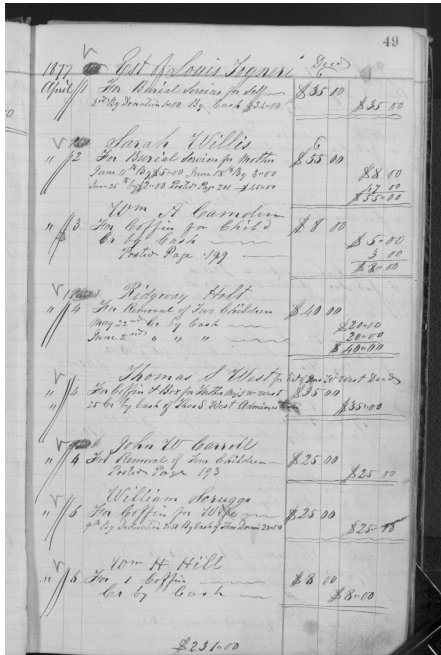 49
1877 Est of Louis Togneri Decd
April 1 For Burial Services for Self $35.00
By Donation 1.00 By Cash $34.00 $35.00
Sarah Willis
" 2 For Burial Services for Mother $55.00
June 11th By $5.00 June 18th By 3.00 $8.00
June 25th By $2.00 Posted Page 201 $45.00 47.00
$55.00
Wm A Camden
" 3 For Coffin for Child $8.00
Cr by Cash $5.00
Posted Page 199 3.00
$8.00
Ridgway Holt
" 4 For Removal of Four Children $40.00
May 22nd Cr by Cash $20.00
June 2nd " " " 20.00
$40.00
Thomas S West for Est of Jno W West Decd
" 4 For Coffin & Box for $35.00
" 25 Cr by Cash of Thos S West Administrator $35.00
John W Carroll
" 4 For Removal of Four Children $25.00
Posted Page 193 $25.00
William Scruggs
" 6 For Coffin for Wife $25.00
By Deduction 2.50 By Cash of Thos 22.50 $25.00
Wm H Hill
" 6 For 1 Coffin $8.00
Cr by Cash $8.00
$231.00